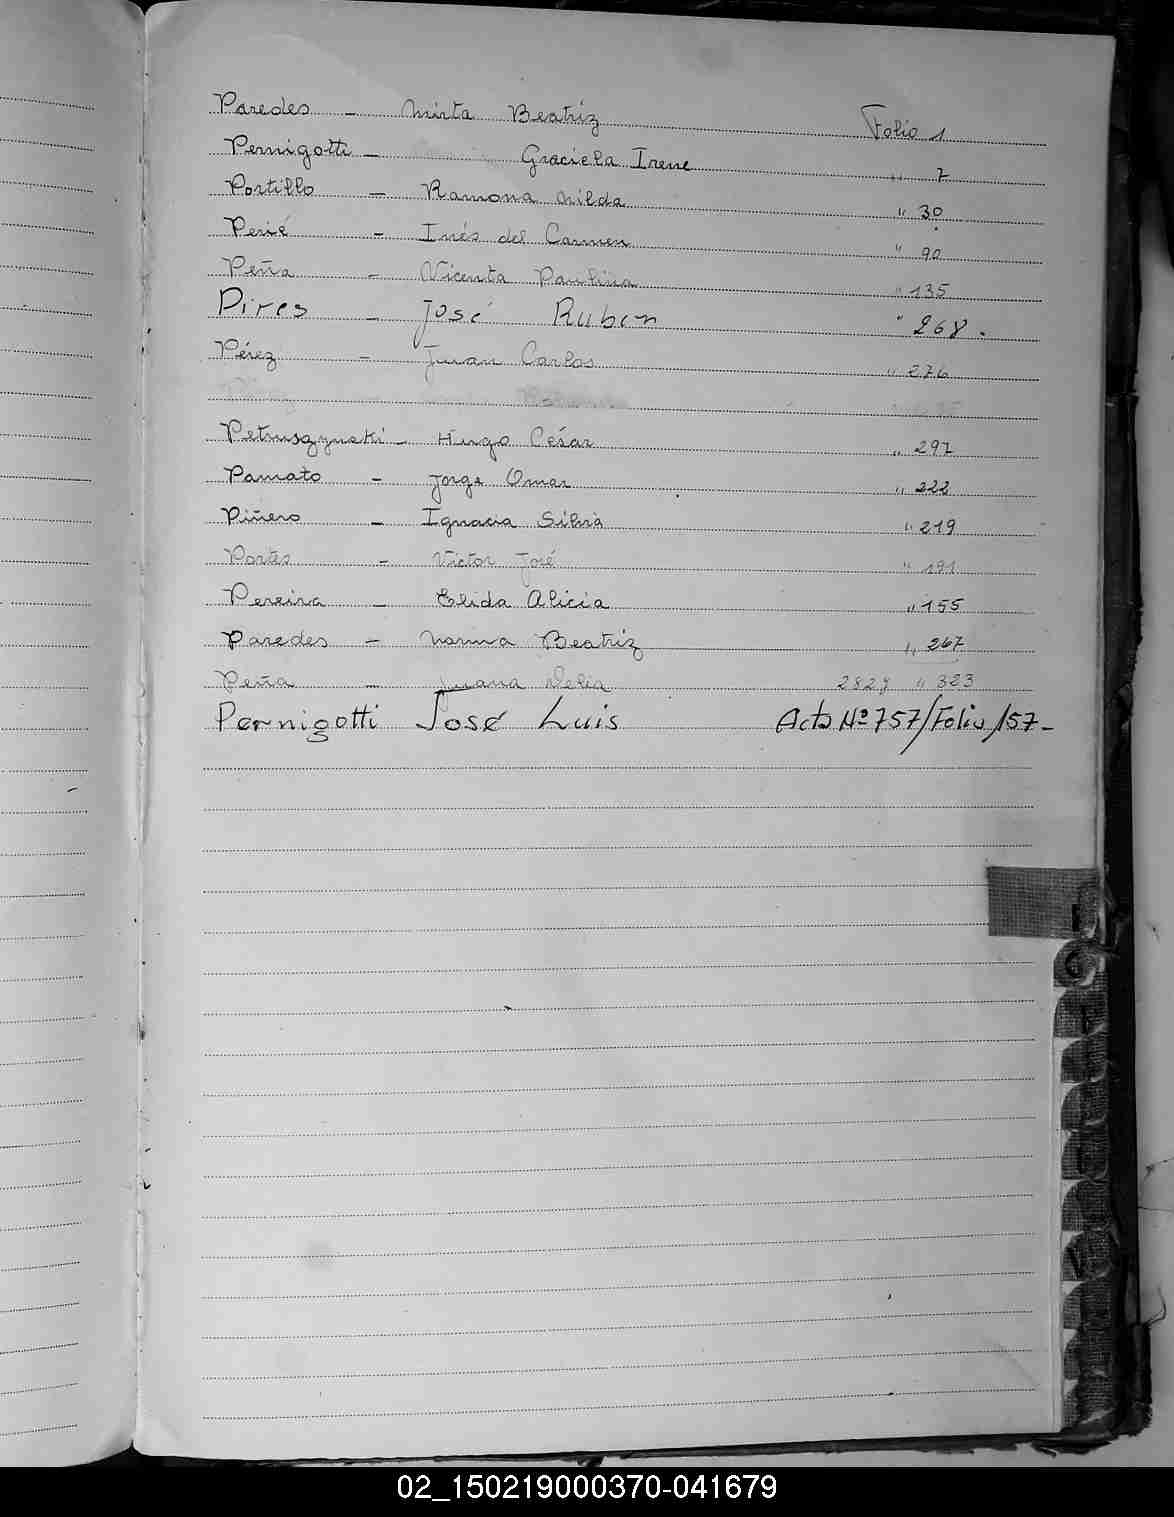 Paredes - Mirta Beatriz Folio 1
Pernigotti - Graciela Irene " 7
Portillo - Ramona Nilda " 30
Perié - Inés del Carmen " 90
Peña - Vicenta Paulina " 135
Pires - José Ruben " 268.
Pérez - Juan Carlos " 276
Petruszynski - Hugo César " 297
Pamato - Jorge Omar " 222
Piñero - Ignacia Silvia " 219
Portes - Victor José " 191
Pereira - Elida Alicia " 155
Paredes - Norma Beatriz " 267
Peña - Juana Delia 2828 " 323
Pernigotti José Luis Acta Nº 757/Folio 157-
02_150219000370-041679